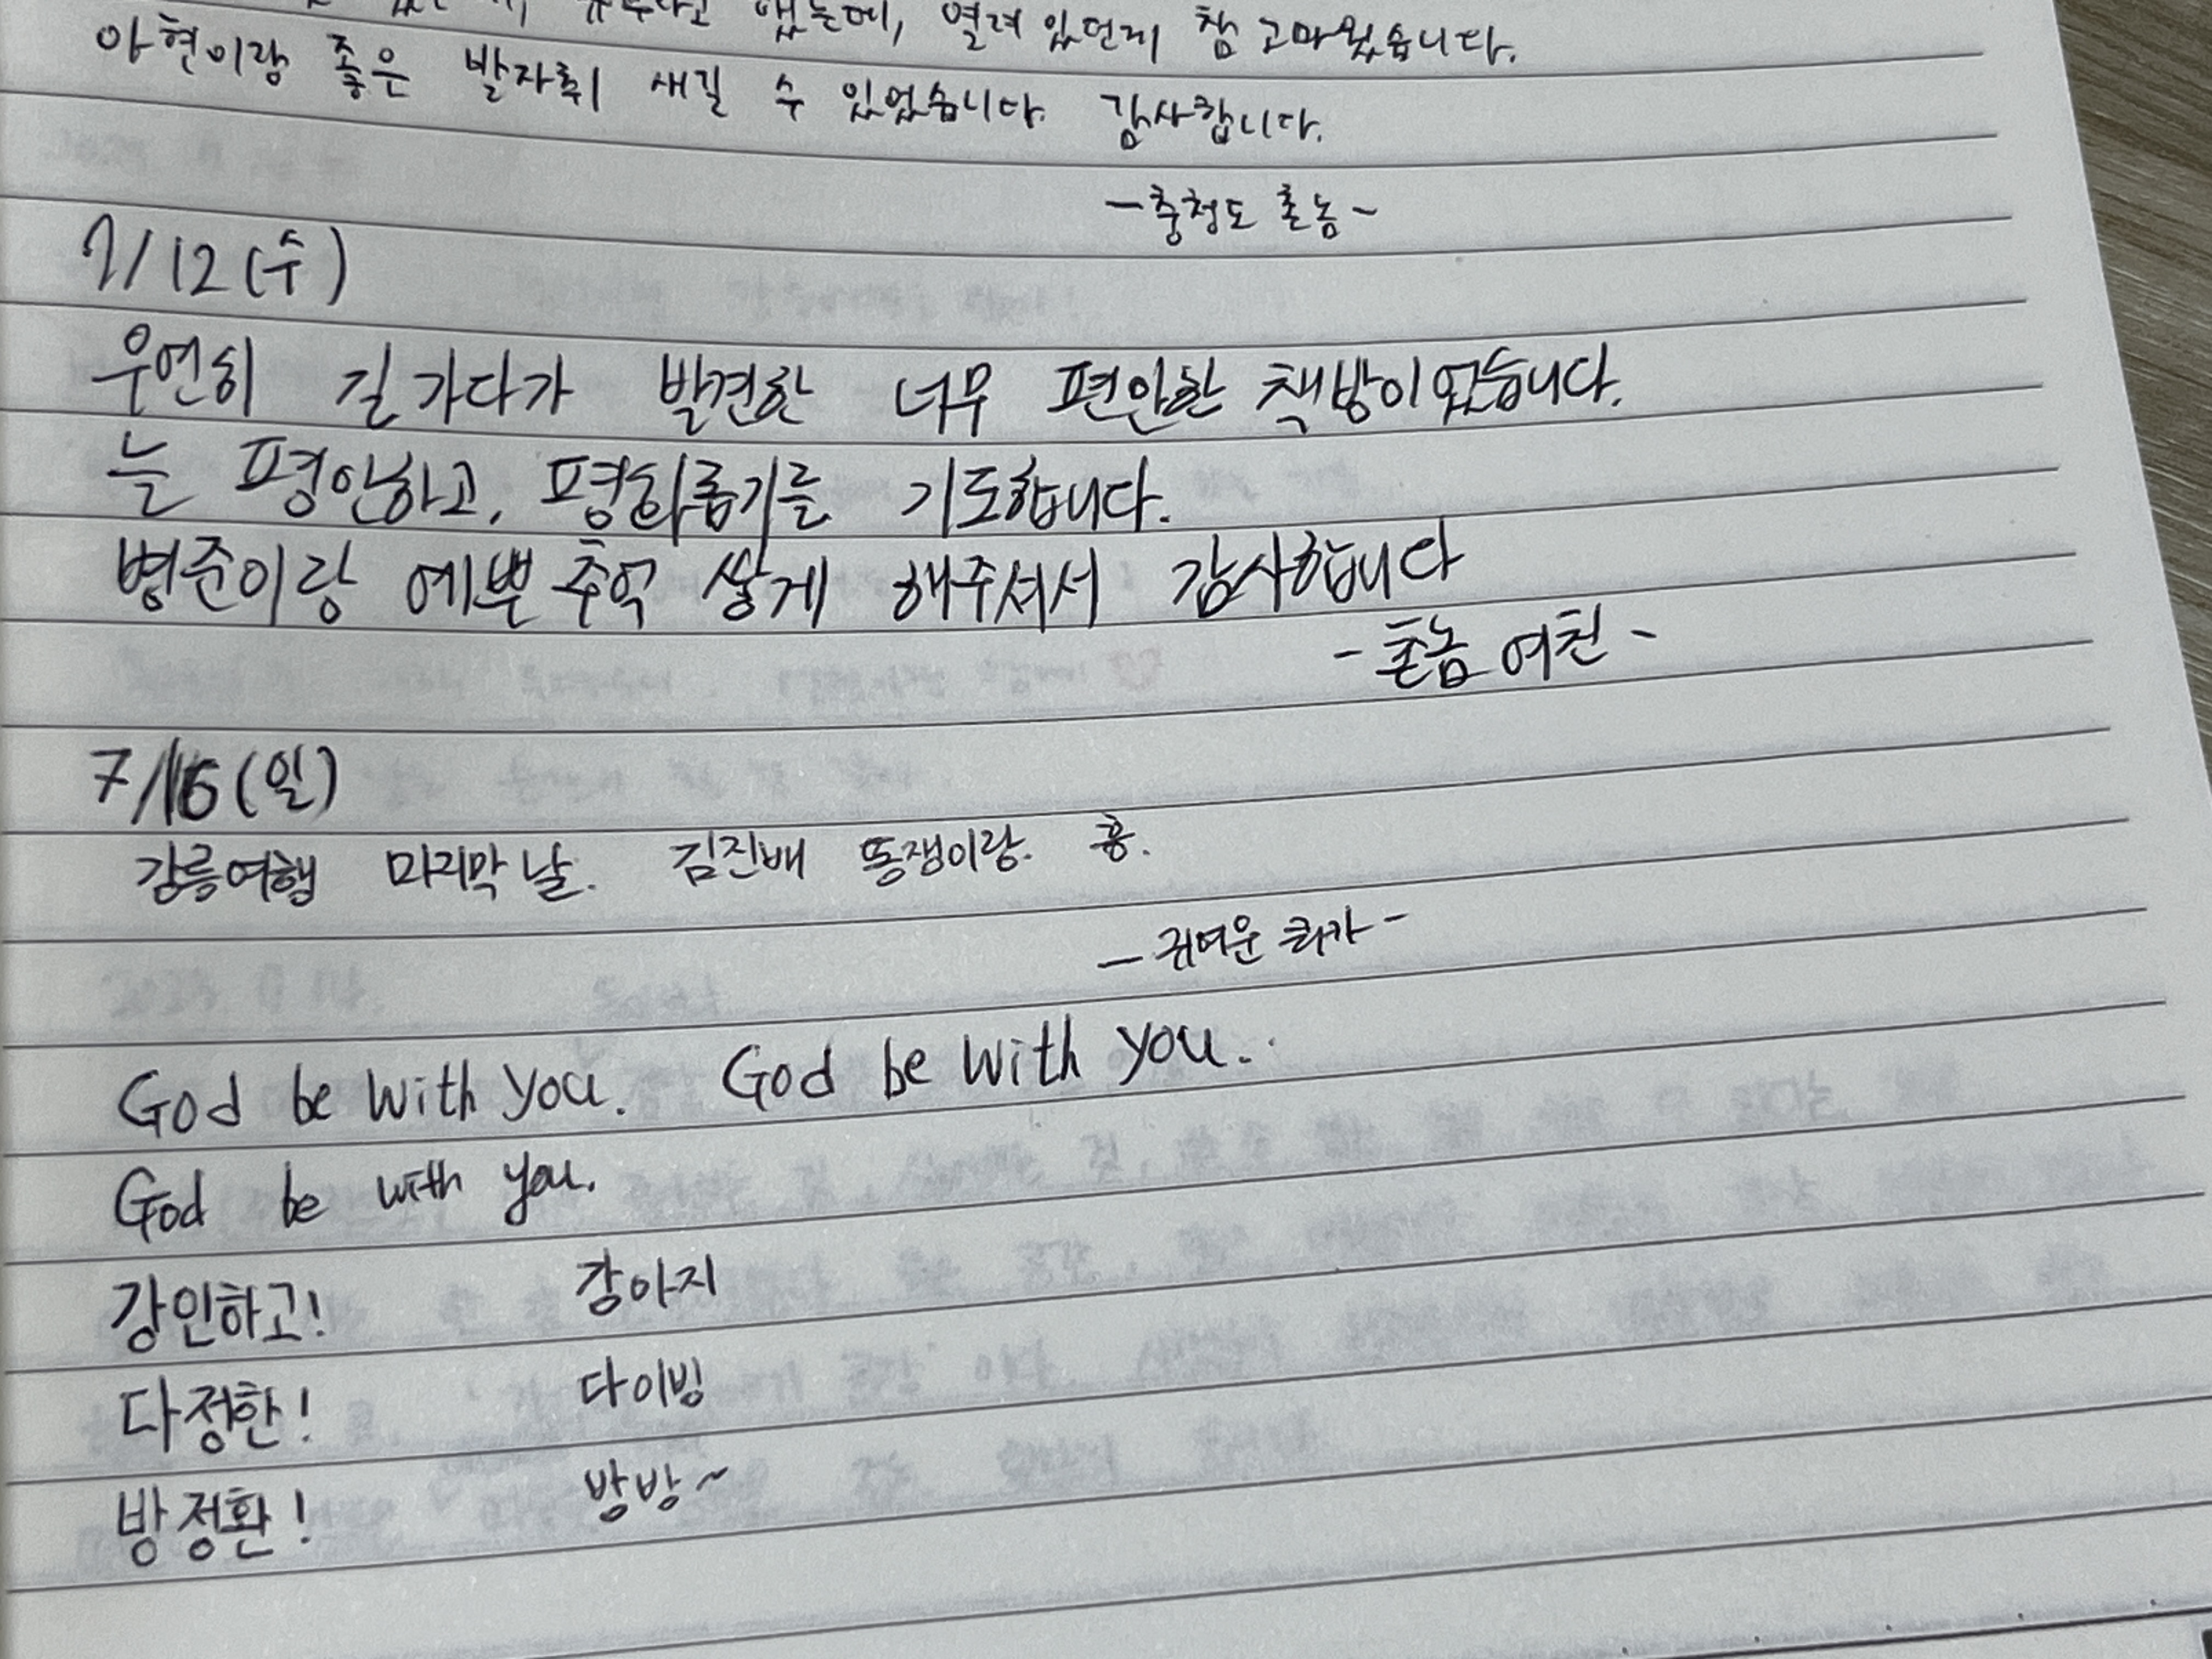 열려있던게 참 고마웠습니다.
아현이랑 좋은 발자취 새길 수 있었습니다. 감사합니다.
-충청도 촌놈~
7/12(수)
우연히 길가다가 발견한 너무 편안한 책방이었습니다.
늘 평안하고, 평화롭기를 기도합니다.
병준이랑 예쁜 추억 쌓게 해주셔서 감사합니다
- 촌놈 여친 -
7/16(일)
강릉여행 마지막 날. 김진배 똥쟁이랑. 흥.
- 귀여운 -
God be with you. God be with you..
God be with you.
강인하고! 강아지
다정한! 다이빙
방정환! 방방~